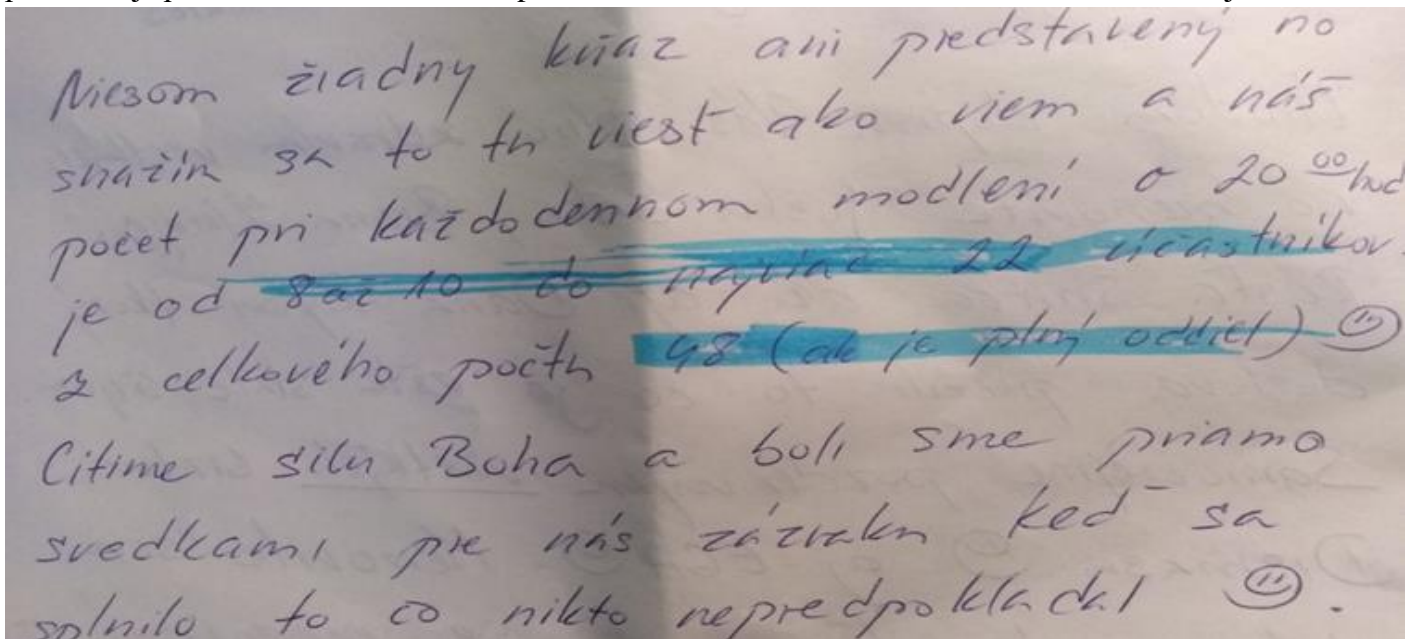 Niesom žiadny kňaz ani predstavený no
snažím sa to tu viesť ako viem a náš
počet pri každodennom modlení o 20 00 hod
je od 8 až 10 do najviac 22 účastníkov.
z celkového počtu 48 (ak je plný oddiel) 
Cítime silu Boha a boli sme priamo
svedkami pre nás zázraku keď sa
splnilo to čo nikto nepredpokladal .